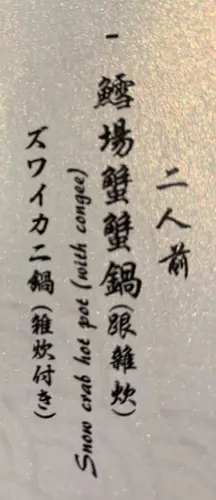 二人前
- 鱈場蟹蟹鍋(跟雜炊)
Snow crab hot pot (with congee)
ズワイカニ鍋(雑炊付き)